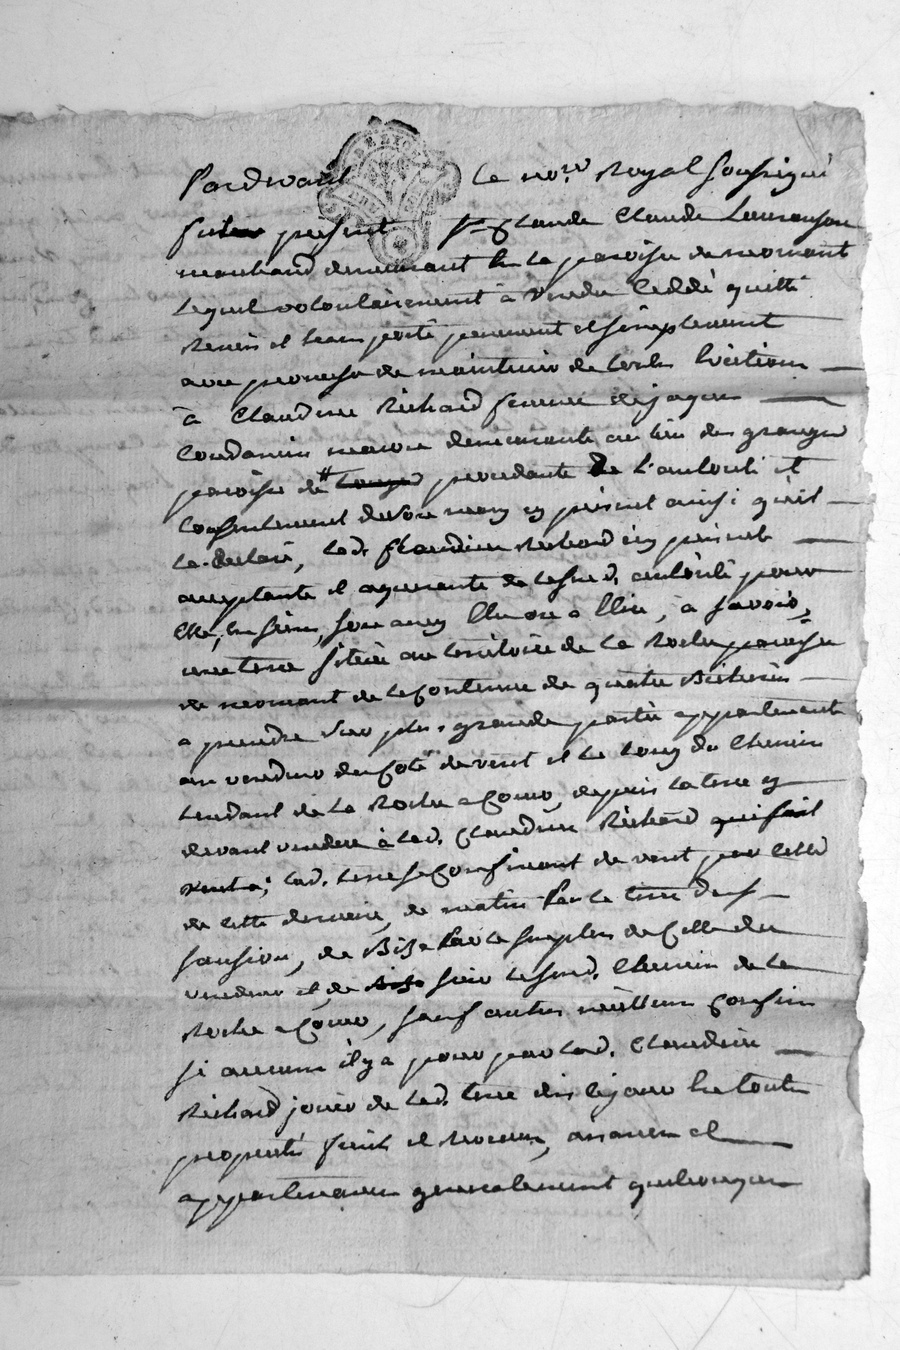 Pardevant le no.re Royal soussigné
fut present sr Claude Laurenson
marchand demeurant en la paroisse de neomant
lequel volontairement a vendu ceddé quitté
Remis et transporté purement et simplement
avec promesse de maintenir de touttes Evictions
à Claudine Richard femme de jaques
Coudamin maneu demeurante au lieu des granges
paroisse de procedante de l'autorité et
Consentement de son mary cy présent ainsi qu'il
le declare, lad. Claudine Richard icy présente
acceptante et aquerante de lasusd. autorité pour
Elle, les siens, son amy Eleu ou a Elire, à savoir,
une terre située au territoire de La Roche paroisse
de neomant de la Contenue de quatre Bicherées
a prendre sur plus grande partie appartenante
au vendeur du Coté de vent et le long du Chemin
tendant de La Roche a depuis la terre cy
devant vendue à lad. Claudine Richard qui fait
vent; lad. terre se Confinant de vent par celle
de cette derniere, de matin par la terre du sr
de Bize par le surplus de Celle du
vendeur et de soir lesusd. Chemin de la
Roche a sauf autres meilleurs Confins
si aucuns il y a pour par lad. Claudine
Richard jouir de lad. terre dès ce jour en toutte
proprieté fruits et Revenus, aisances et
appartenances generalement quelconques